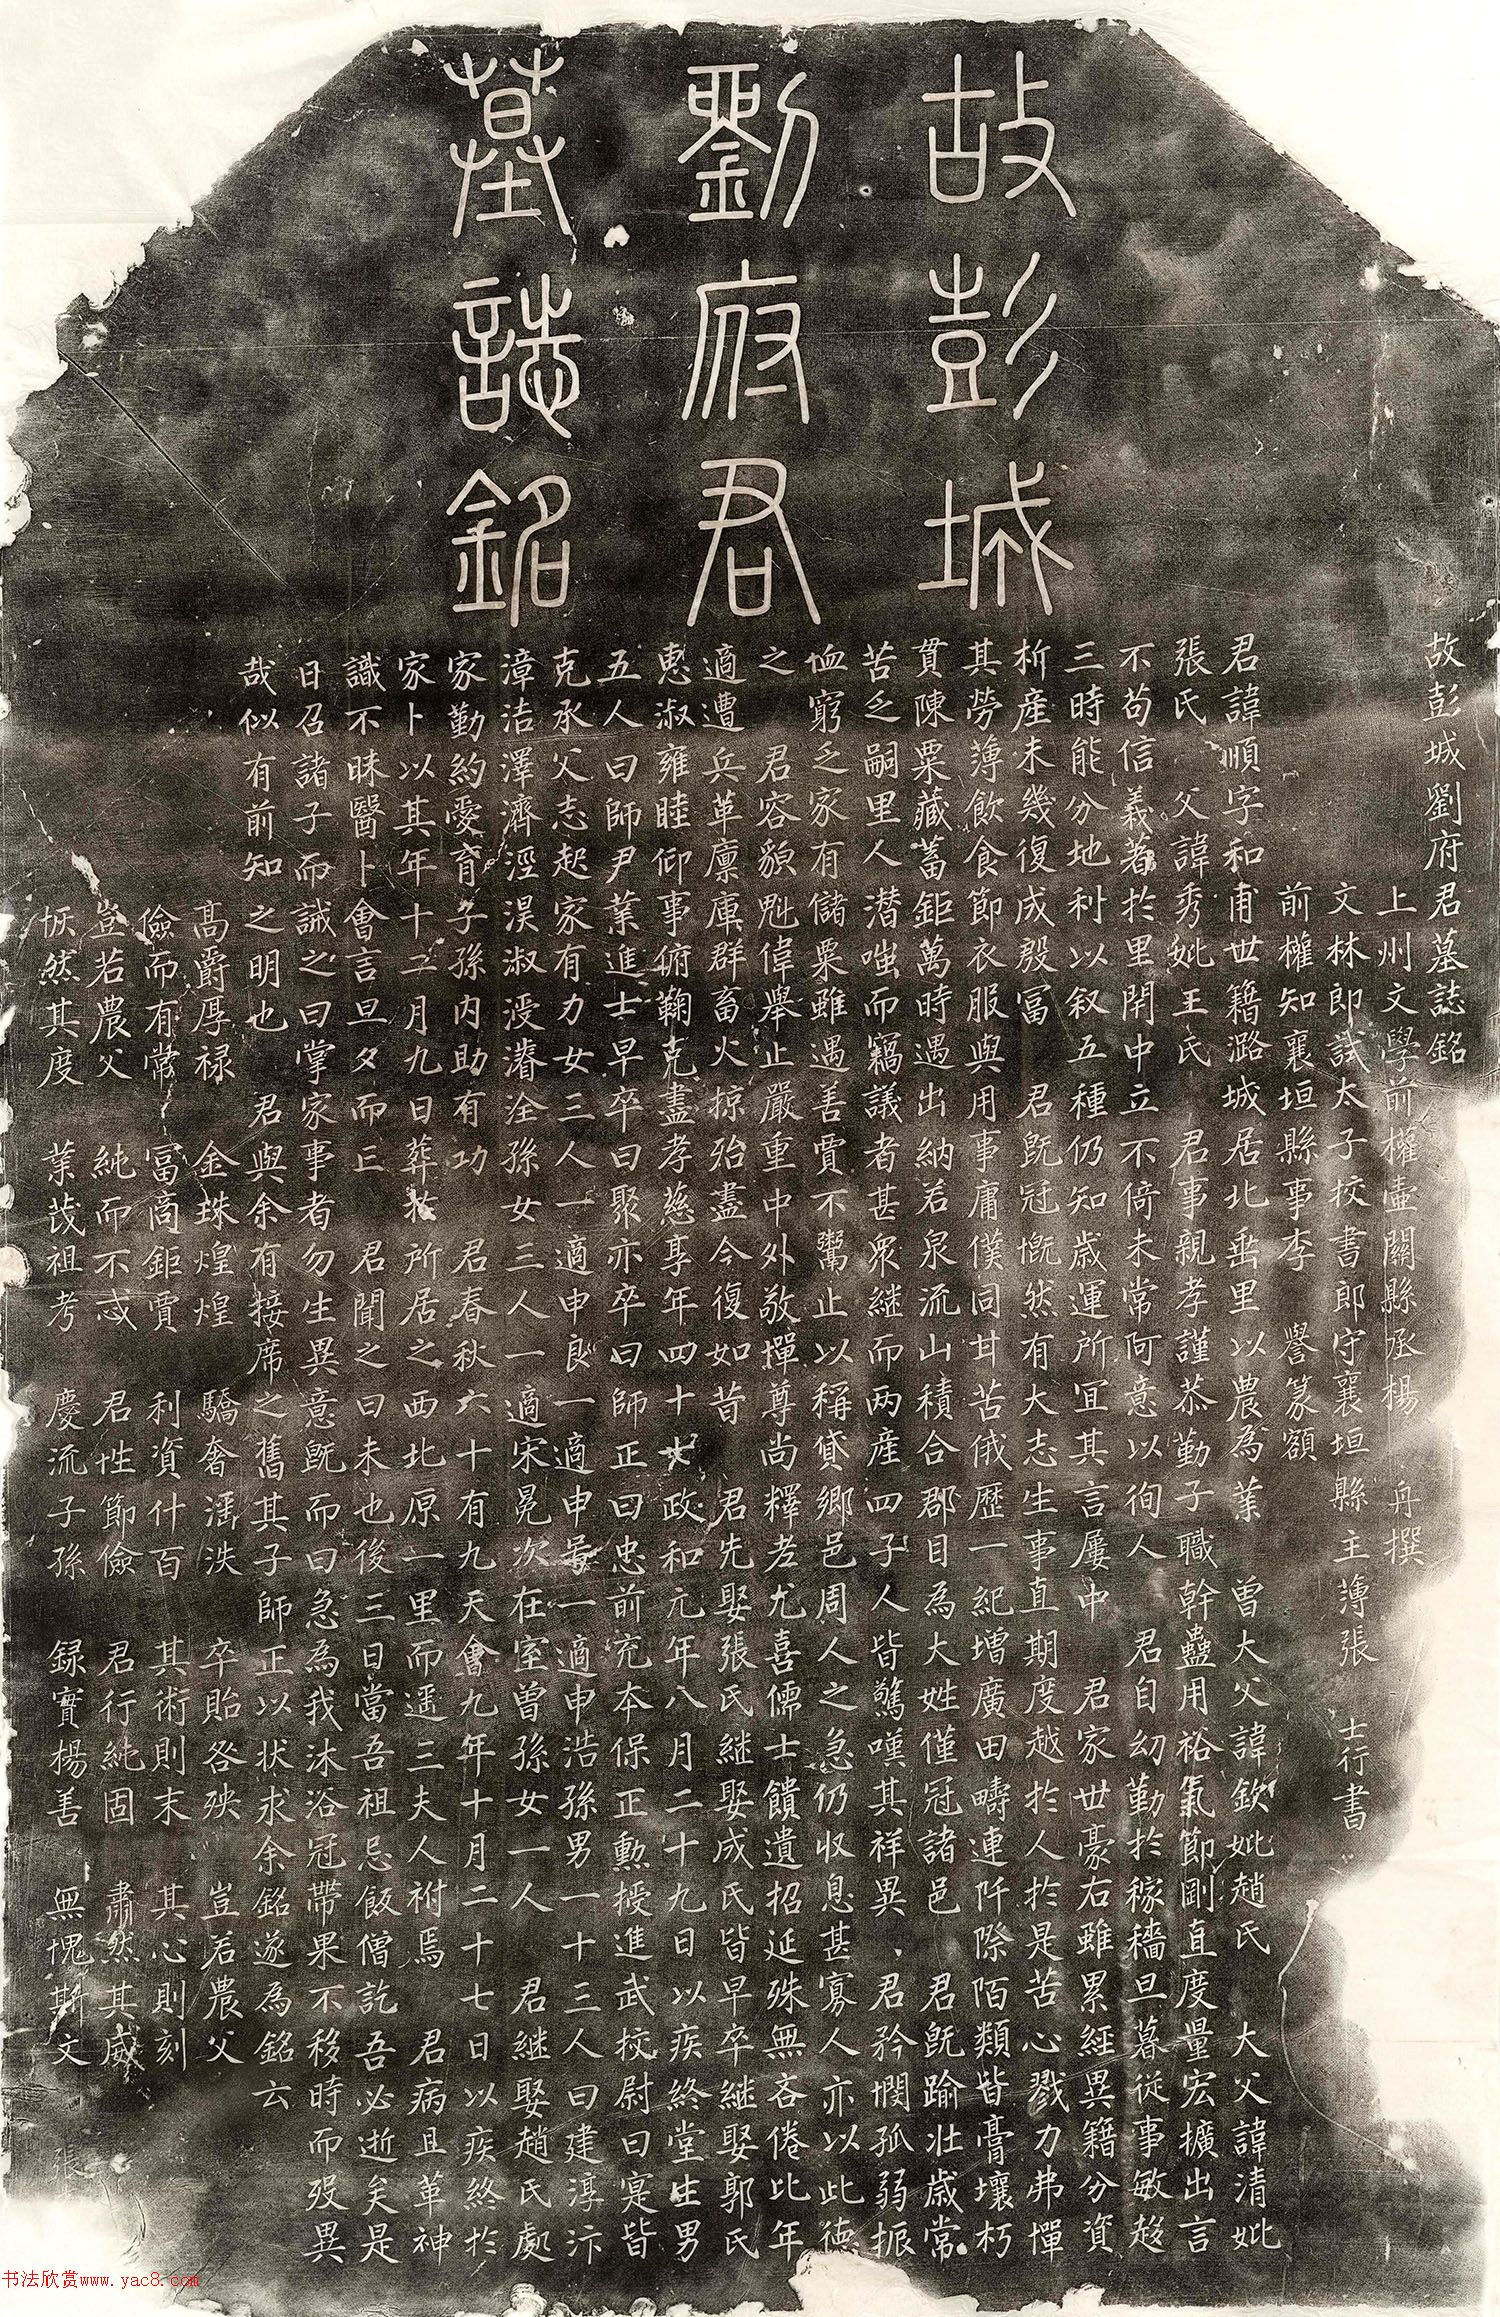 故彭城
劉府君
墓誌銘
故彭城劉府君墓誌銘
上州文學前權壺關縣丞楊 舟撰
文林郎試太子校書郎守襄垣縣主薄張 士行書
前權知襄垣縣事李 譽篆額
君諱順字和甫世籍潞城居北垂里以農為業 曽大父諱欽妣趙氏 大父諱清妣
張氏 父諱秀妣王氏 君事親孝謹恭勤子職幹蠱用裕氣節剛直度量宏擴出言
不苟信義著於里閈中立不倚未常阿意以徇人 君自幼勤於稼穡旦暮従事敏趍
三時能分地利以叙五種仍知歳運所宜其言屢中 君家世豪右雖累經異籍分資
析産未幾復成殷富 君既冠慨然有大志生事直期度越於人於是苦心戮力弗憚
其勞薄飲食節衣服與用事庸僕同甘苦俄歴一紀増廣田疇連阡際陌類皆膏壤朽
貫陳粟藏蓄鉅萬時遇出納若泉流山積合郡目為大姓僅冠諸邑 君既踰壯歳常
苦乏嗣里人潜嗤而竊議者甚衆継而两産四子人皆驚嘆其祥異 君矜憫孤弱振
恤窮乏家有儲粟雖遇善賈不鬻止以稱貸鄉邑周人之急仍收息甚寡人亦以此徳
之 君容貌魁偉舉止嚴重中外敬憚尊尚釋老尤喜儒士饋遺招延殊無吝倦比年
適遭兵革廪庫群畜火掠殆盡今復如昔 君先娶張氏継娶成氏皆早卒継娶郭氏
恵淑雍睦仰事俯鞠克盡孝慈享年四十七政和元年八月二十九日以疾終堂生男
五人曰師尹業進士早卒曰聚亦卒曰師正曰忠前充本保正勲授進武校尉曰寔皆
克承父志起家有力女三人一適申良一適申暠一適申浩孫男一十三人曰建淳汴
漳洁澤濟涇淏淑浸濬洤孫女三人一適宋晃次在室曽孫女一人 君継娶趙氏處
家勤約愛育子孫内助有功 君春秋六十有九天會九年十月二十七日以疾終於
家卜以其年十二月九日葬於所居之西北原一里而遥三夫人祔焉 君病且革神
識不昧醫卜會言旦夕而亡 君聞之曰未也後三日當吾祖忌飯僧訖吾必逝矣是
日召諸子而誡之曰掌家事者勿生異意既而曰急為我沐浴冠帶果不移時而歿異
哉似有前知之明也 君與余有接席之舊其子師正以状求余銘遂為銘云
髙爵厚禄 金珠煌煌 驕奢滛泆 卒貽咎殃 豈若農父
儉而有常 富商鉅賈 利資什百 其術則末 其心則刻
豈若農父 純而不忒 君性節儉 君行純固 肅然其威
恢然其度 業茂祖考 慶流子孫 録實楊善 無愧斯文
張
书法欣赏www.yac8.com